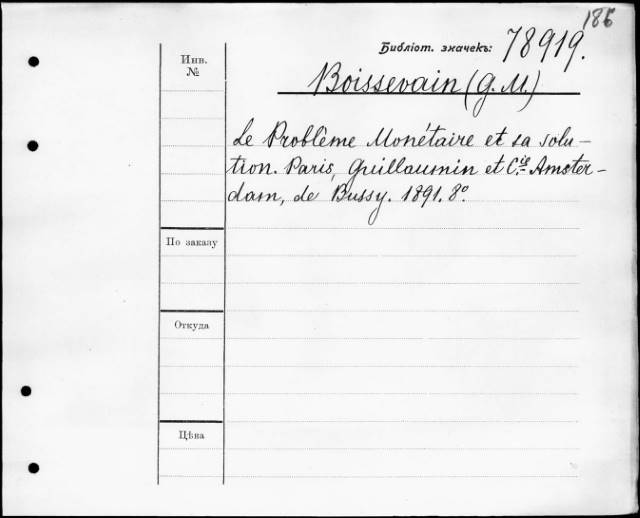 186
Библіот. значекъ: 78919.
Инв. №
Boissevain (G. M.)
Le Problème Monétaire et sa solu-
tion. Paris, Guillaumin et C.ie Amster-
dam, de Bussy. 1891. 8°.
По заказу
Откуда
Цѣна